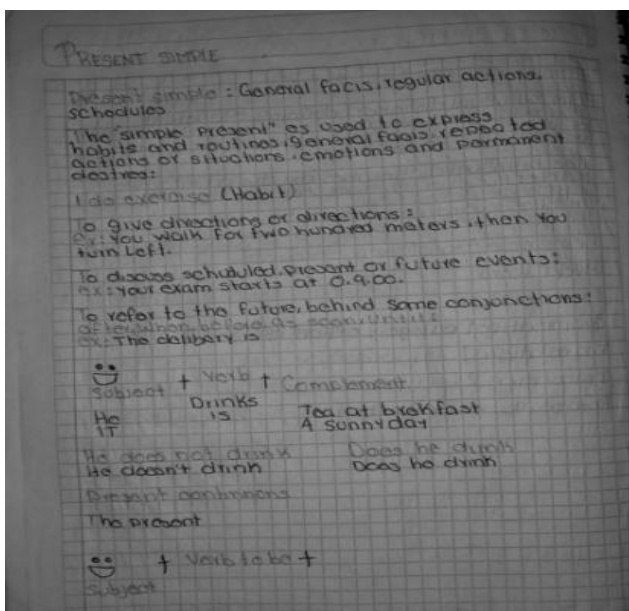 PRESENT SIMPLE
Present simple: General facts, regular actions,
schedules
The "simple Present" es used to express
habits and routines, general facts, repeated
actions or situations, emotions and permanent
desires:
I do exercise (Habit)
To give directions or directions:
ex: You walk for two hundred meters, then You
turn Left.
To discuss scheduled, present or future events:
ex: your exam starts at 0.9.00.
To refer to the future, behind some conjunctions:
after, when, before, as soon, until:
ex: The delibery is
Subject + Verb + Complement
Drinks
He is Tea at brekfast
IT A sunny day
He does not drink Does he drink
He doesn't drink Does he drink
Present continuous
The present
+ Verb to be +
Subject